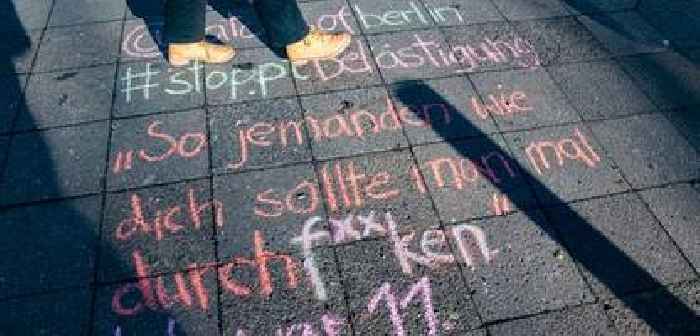 of berlin
#stop.pt Belästigung
„So jemanden wie
dich sollte man mal
durchfxxken"
11.